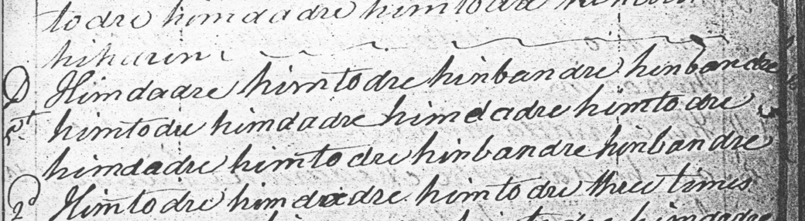 todre himdadre himtodre
hiharin
D Himdadre himtodre hinbandre hinbandre
himtodre himdadre himdadre himtodre
himdadre himtodre hinbandre hinbandre
2d Himtodre himdadre himtodre three times
himdadre